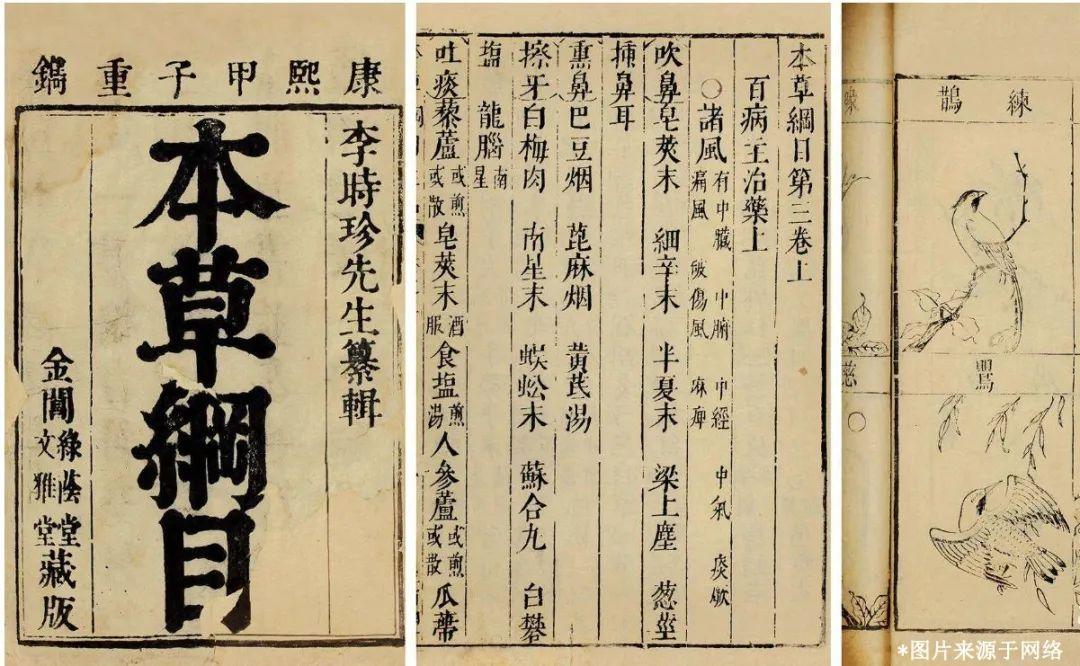 康熙甲子重鐫
李時珍先生纂輯
本草綱目
金閶綠蔭堂文雅堂藏版
本草綱目第三卷上
百病主治藥上
○諸風 有中臟 中腑 中經 中氣 痰厥 痛風 破傷風 麻痺
吹鼻皂莢末 細辛末 半夏末 梁上塵 葱莖
挿鼻耳
熏鼻巴豆烟 蓖麻烟 黃芪湯
擦牙白梅肉 南星末 蜈蚣末 蘇合丸 白礬
塩 龍腦南星
吐痰藜蘆或煎或散 皂莢末酒服 食塩煎湯 人參蘆或煎或散 瓜蒂
練鵲
鸎
*图片来源于网络